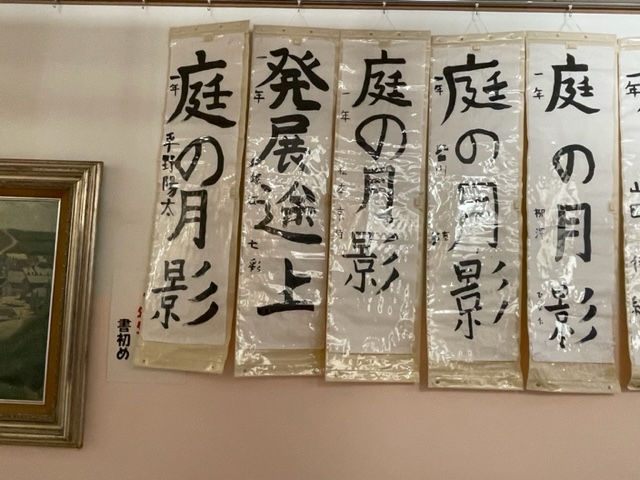 庭の月影
一年
平野陽太
発展途上
一年
七彩
庭の月影
一年
庭の月影
一年
庭の月影
一年
柳澤
年
山田
書初め